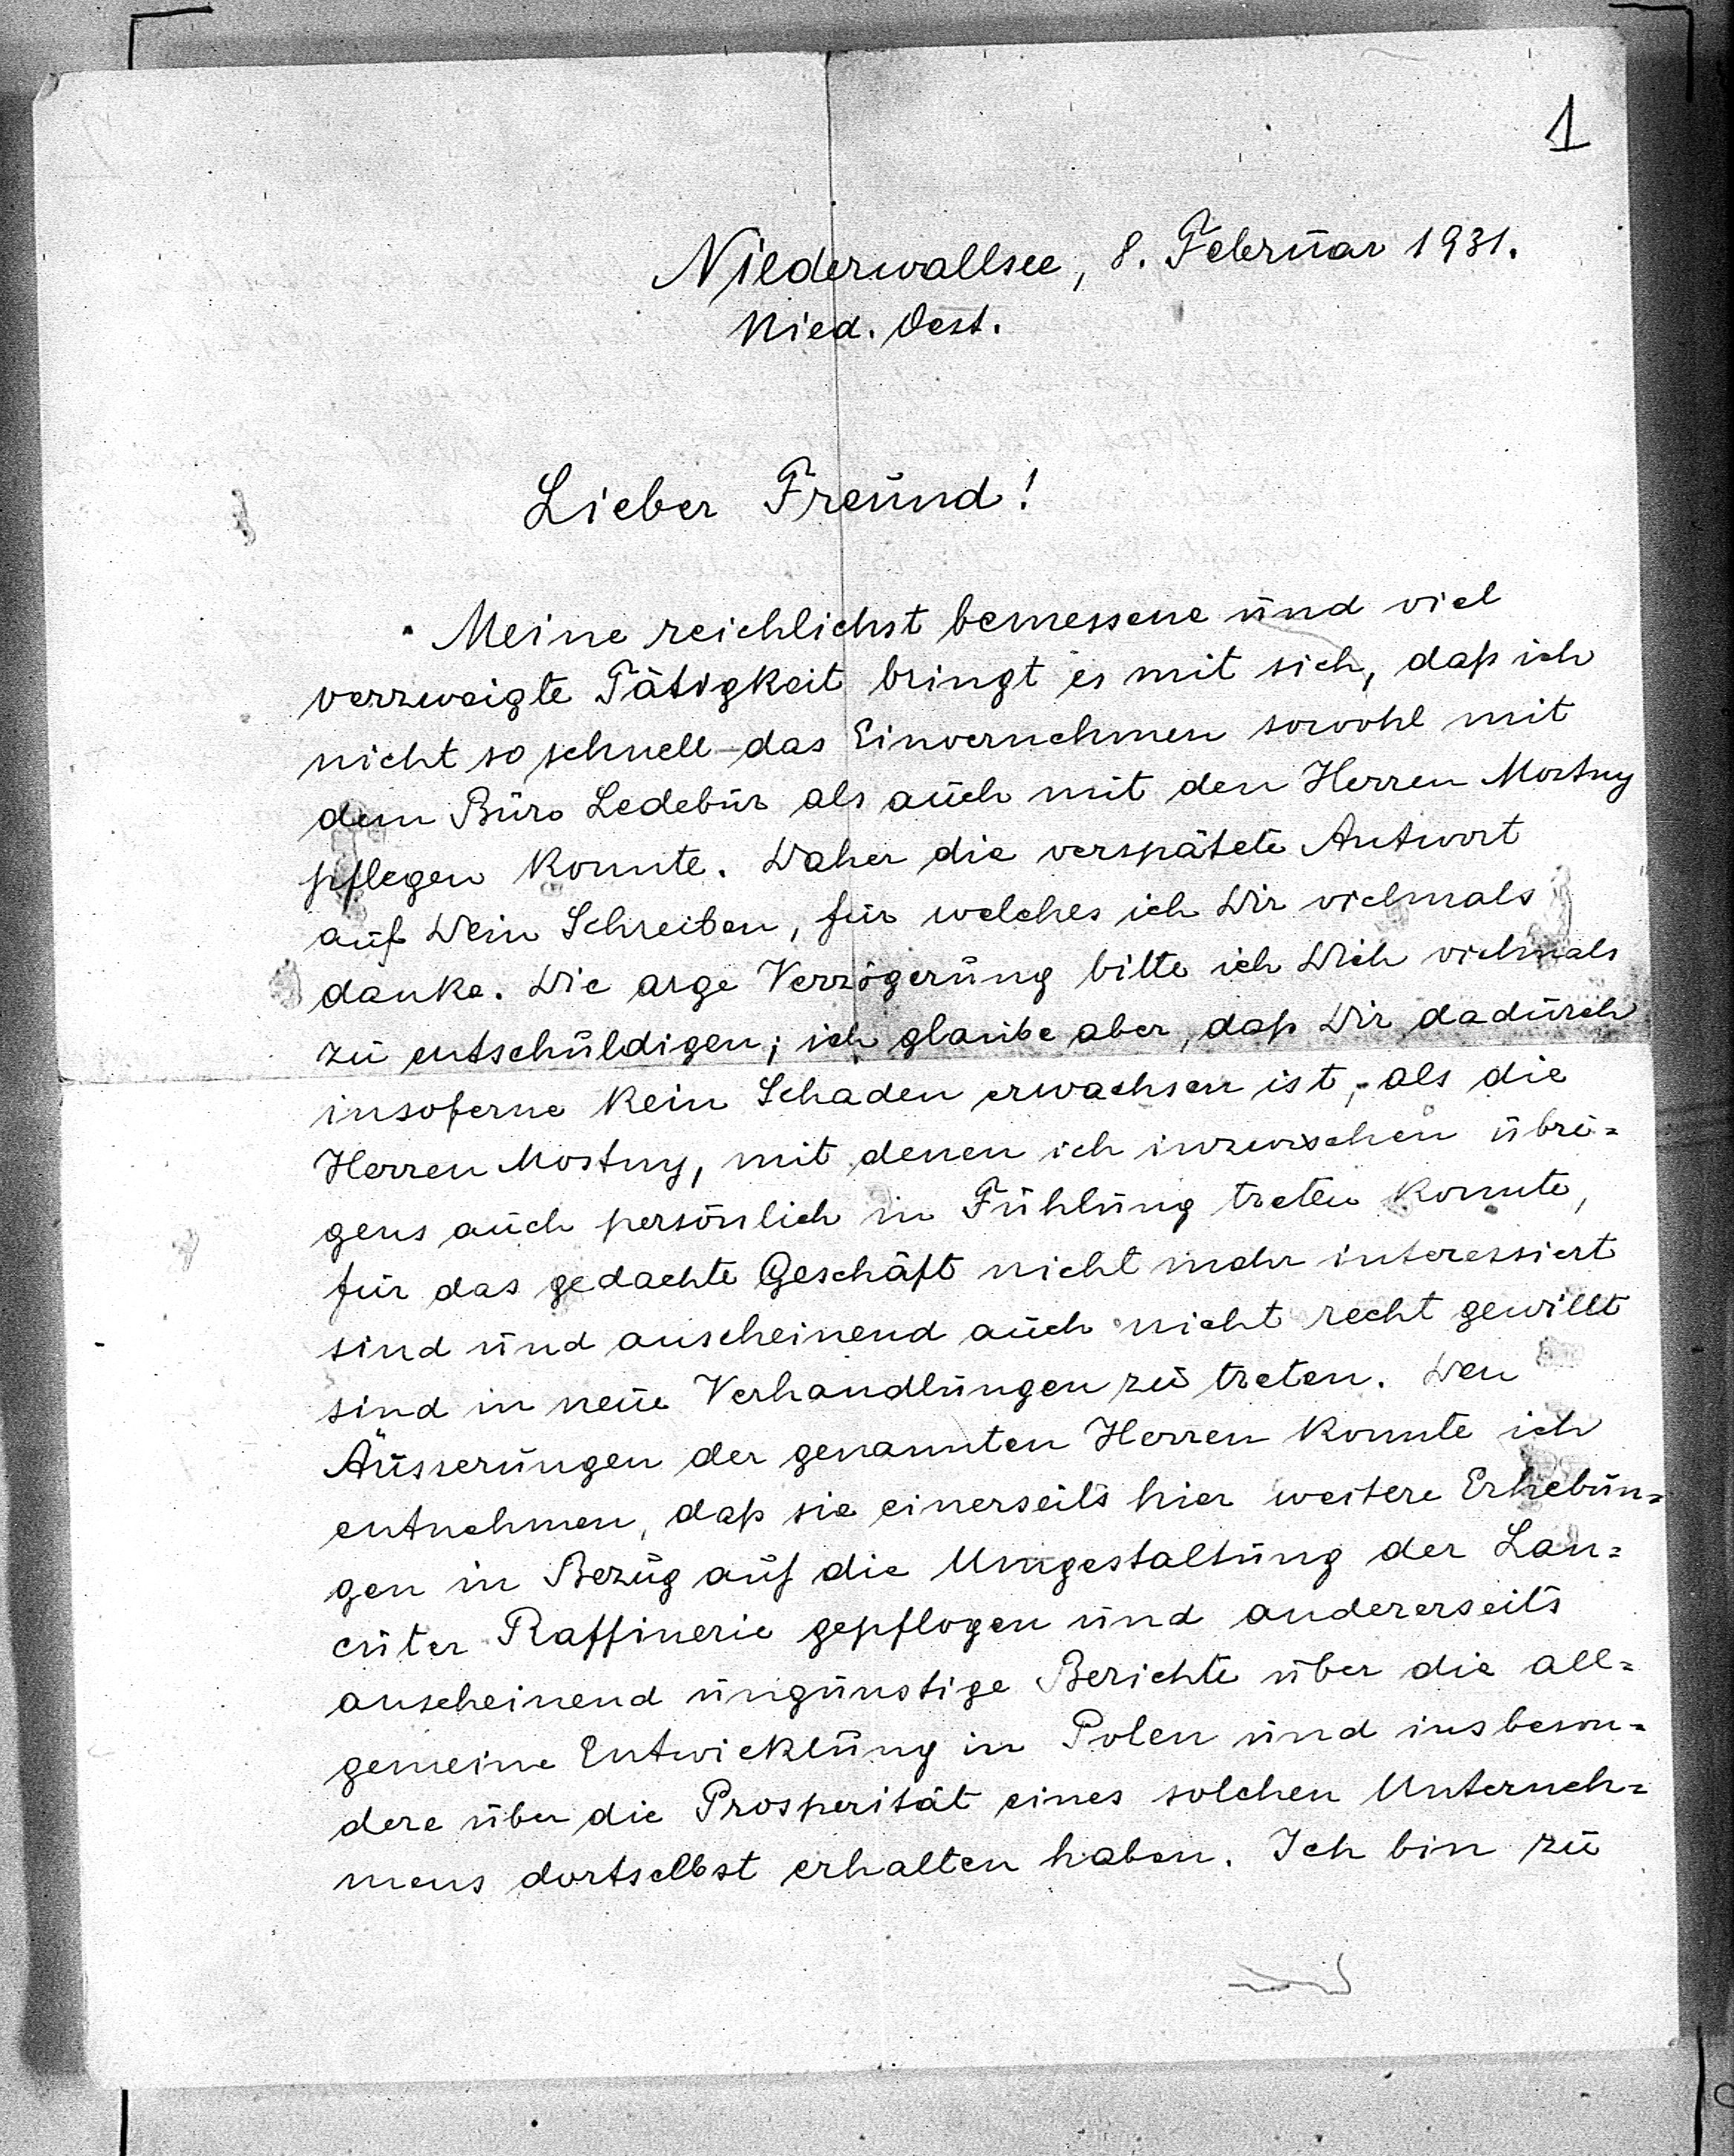 1
Niederwallsee, 8. Februar 1931.
Nied. Oest.
Lieber Freund!
Meine reichlichst bemessene und viel
verzweigte Tätigkeit bringt es mit sich, daß ich
nicht so schnell das Einvernehmen sowohl mit
dem Büro Ledebur als auch mit den Herren Mostny
pflegen konnte. Daher die verspätete Antwort
auf Dein Schreiben, für welches ich Dir vielmals
danke. Die arge Verzögerung bitte ich Dich vielmals
zu entschuldigen; ich glaube aber, daß Dir dadurch
insoferne kein Schaden erwachsen ist, als die
Herren Mostny, mit denen ich inzwischen übri=
gens auch persönlich in Fühlung treten konnte,
für das gedachte Geschäft nicht mehr interessiert
sind und anscheinend auch nicht recht gewillt
sind in neue Verhandlungen zu treten. Den
Äusserungen der genannten Herren konnte ich
entnehmen, daß sie einerseits hier weitere Erhebun=
gen in Bezug auf die Umgestaltung der Lan=
cuter Raffinerie gepflogen und andererseits
anscheinend ungünstige Berichte über die all=
gemeine Entwicklung in Polen und insbeson=
dere über die Prosperität eines solchen Unterneh=
mens dortselbst erhalten haben. Ich bin zu